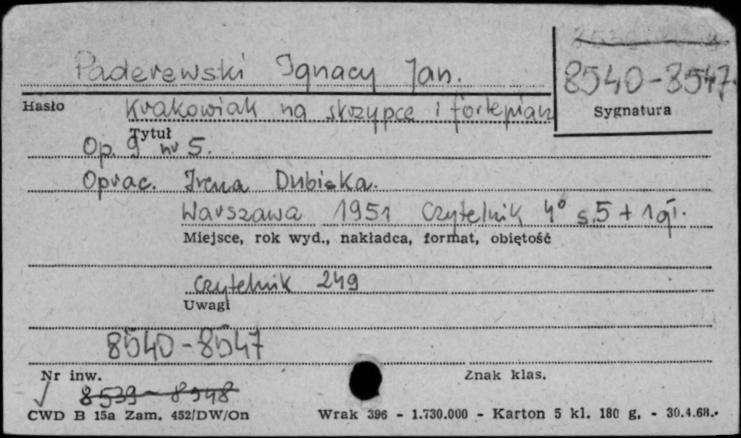 Paderewski Ignacy Jan.
8540-8547
Hasło
Sygnatura
Krakowiak na skrzypce i fortepian
Tytuł
Op. 9 nr 5.
Oprac. Irena Dubiska.
Warszawa 1951 Czytelnik 4° s.5 + 1 gł.
Miejsce, rok wyd., nakładca, format, objętość
Czytelnik 249
Uwagi
8540-8547
Nr inw.
Znak klas.
8539-8948
CWD B 15a Zam. 452/DW/On
Wrak 396 - 1.730.000 - Karton 5 kl. 180 g. - 30.4.68.